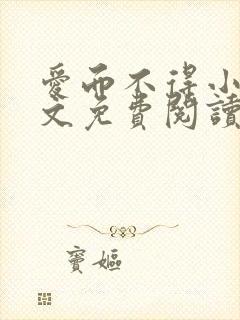 愛而不得小
文免費閱讀
竇嫗